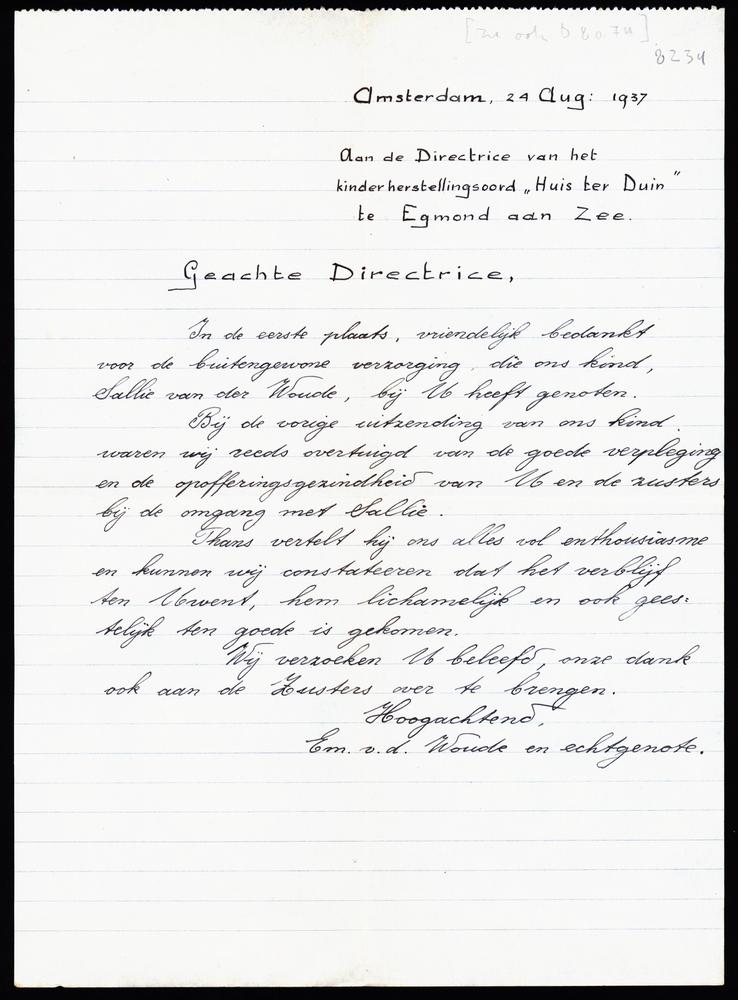 [zie ook D 8074]
8234
Amsterdam, 24 Aug: 1937
Aan de Directrice van het
kinderherstellingsoord „Huis ter Duin”
te Egmond aan Zee.
Geachte Directrice,
In de eerste plaats, vriendelijk bedankt
voor de buitengewone verzorging, die ons kind,
Sallie van der Woude, bij U heeft genoten.
Bij de vorige uitzending van ons kind
waren wij reeds overtuigd van de goede verpleging
en de opofferingsgezindheid van U en de zusters
bij de omgang met Sallie.
Thans vertelt hij ons alles vol enthousiasme
en kunnen wij constateeren dat het verblijf
ten Uwent, hem lichamelijk en ook gees:
telijk ten goede is gekomen.
Wij verzoeken U beleefd, onze dank
ook aan de Zusters over te brengen.
Hoogachtend,
Em. v. d. Woude en echtgenote.